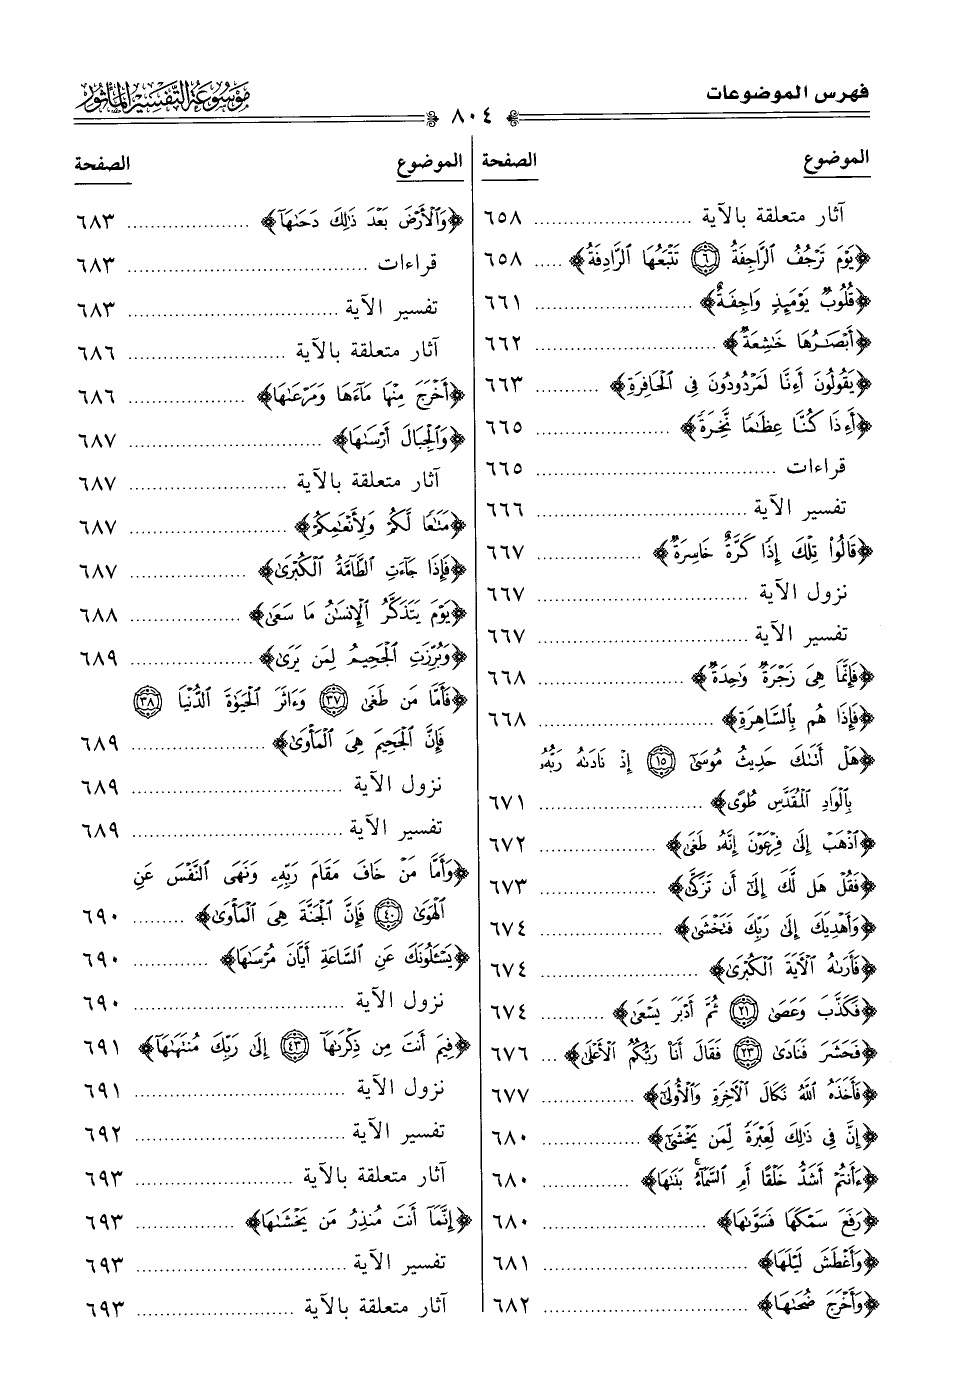 فهرس الموضوعات
موسوعة التفسير المأثور
٨٠٤
الموضوع الصفحة
آثار متعلقة بالآية ٦٥٨
﴿يَوْمَ تَرْجُفُ ٱلرَّاجِفَةُ ۝٦ تَتْبَعُهَا ٱلرَّادِفَةُ﴾ ٦٥٨
﴿قُلُوبٌ يَوْمَئِذٍ وَاجِفَةٌ﴾ ٦٦١
﴿أَبْصَٰرُهَا خَٰشِعَةٌ﴾ ٦٦٢
﴿يَقُولُونَ أَءِنَّا لَمَرْدُودُونَ فِى ٱلْحَافِرَةِ﴾ ٦٦٣
﴿أَءِذَا كُنَّا عِظَٰمًا نَّخِرَةً﴾ ٦٦٥
قراءات ٦٦٥
تفسير الآية ٦٦٦
﴿قَالُوا۟ تِلْكَ إِذًا كَرَّةٌ خَاسِرَةٌ﴾ ٦٦٧
نزول الآية ٦٦٧
تفسير الآية ٦٦٧
﴿فَإِنَّمَا هِىَ زَجْرَةٌ وَٰحِدَةٌ﴾ ٦٦٨
﴿فَإِذَا هُم بِٱلسَّاهِرَةِ﴾ ٦٦٨
﴿هَلْ أَتَىٰكَ حَدِيثُ مُوسَىٰٓ ۝١٥ إِذْ نَادَىٰهُ رَبُّهُۥ
بِٱلْوَادِ ٱلْمُقَدَّسِ طُوًى﴾ ٦٧١
﴿ٱذْهَبْ إِلَىٰ فِرْعَوْنَ إِنَّهُۥ طَغَىٰ﴾ ٦٧٢
﴿فَقُلْ هَل لَّكَ إِلَىٰٓ أَن تَزَكَّىٰ﴾ ٦٧٣
﴿وَأَهْدِيَكَ إِلَىٰ رَبِّكَ فَتَخْشَىٰ﴾ ٦٧٤
﴿فَأَرَىٰهُ ٱلْءَايَةَ ٱلْكُبْرَىٰ﴾ ٦٧٤
﴿فَكَذَّبَ وَعَصَىٰ ۝٢١ ثُمَّ أَدْبَرَ يَسْعَىٰ﴾ ٦٧٤
﴿فَحَشَرَ فَنَادَىٰ ۝٢٣ فَقَالَ أَنَا۠ رَبُّكُمُ ٱلْأَعْلَىٰ﴾ ٦٧٦
﴿فَأَخَذَهُ ٱللَّهُ نَكَالَ ٱلْءَاخِرَةِ وَٱلْأُولَىٰٓ﴾ ٦٧٧
﴿إِنَّ فِى ذَٰلِكَ لَعِبْرَةً لِّمَن يَخْشَىٰٓ﴾ ٦٨٠
﴿ءَأَنتُمْ أَشَدُّ خَلْقًا أَمِ ٱلسَّمَآءُ ۚ بَنَىٰهَا﴾ ٦٨٠
﴿رَفَعَ سَمْكَهَا فَسَوَّىٰهَا﴾ ٦٨٠
﴿وَأَغْطَشَ لَيْلَهَا﴾ ٦٨١
﴿وَأَخْرَجَ ضُحَىٰهَا﴾ ٦٨٢
الموضوع الصفحة
﴿وَٱلْأَرْضَ بَعْدَ ذَٰلِكَ دَحَىٰهَآ﴾ ٦٨٣
قراءات ٦٨٣
تفسير الآية ٦٨٣
آثار متعلقة بالآية ٦٨٦
﴿أَخْرَجَ مِنْهَا مَآءَهَا وَمَرْعَىٰهَا﴾ ٦٨٦
﴿وَٱلْجِبَالَ أَرْسَىٰهَا﴾ ٦٨٧
آثار متعلقة بالآية ٦٨٧
﴿مَتَٰعًا لَّكُمْ وَلِأَنْعَٰمِكُمْ﴾ ٦٨٧
﴿فَإِذَا جَآءَتِ ٱلطَّآمَّةُ ٱلْكُبْرَىٰ﴾ ٦٨٧
﴿يَوْمَ يَتَذَكَّرُ ٱلْإِنسَٰنُ مَا سَعَىٰ﴾ ٦٨٨
﴿وَبُرِّزَتِ ٱلْجَحِيمُ لِمَن يَرَىٰ﴾ ٦٨٩
﴿فَأَمَّا مَن طَغَىٰ ۝٣٧ وَءَاثَرَ ٱلْحَيَوٰةَ ٱلدُّنْيَا ۝٣٨
فَإِنَّ ٱلْجَحِيمَ هِىَ ٱلْمَأْوَىٰ﴾ ٦٨٩
نزول الآية ٦٨٩
تفسير الآية ٦٨٩
﴿وَأَمَّا مَنْ خَافَ مَقَامَ رَبِّهِۦ وَنَهَى ٱلنَّفْسَ عَنِ
ٱلْهَوَىٰ ۝٤٠ فَإِنَّ ٱلْجَنَّةَ هِىَ ٱلْمَأْوَىٰ﴾ ٦٩٠
﴿يَسْـَٔلُونَكَ عَنِ ٱلسَّاعَةِ أَيَّانَ مُرْسَىٰهَا﴾ ٦٩٠
نزول الآية ٦٩٠
﴿فِيمَ أَنتَ مِن ذِكْرَىٰهَآ ۝٤٣ إِلَىٰ رَبِّكَ مُنتَهَىٰهَآ﴾ ٦٩١
نزول الآية ٦٩١
تفسير الآية ٦٩٢
آثار متعلقة بالآية ٦٩٣
﴿إِنَّمَآ أَنتَ مُنذِرُ مَن يَخْشَىٰهَا﴾ ٦٩٣
تفسير الآية ٦٩٣
آثار متعلقة بالآية ٦٩٣